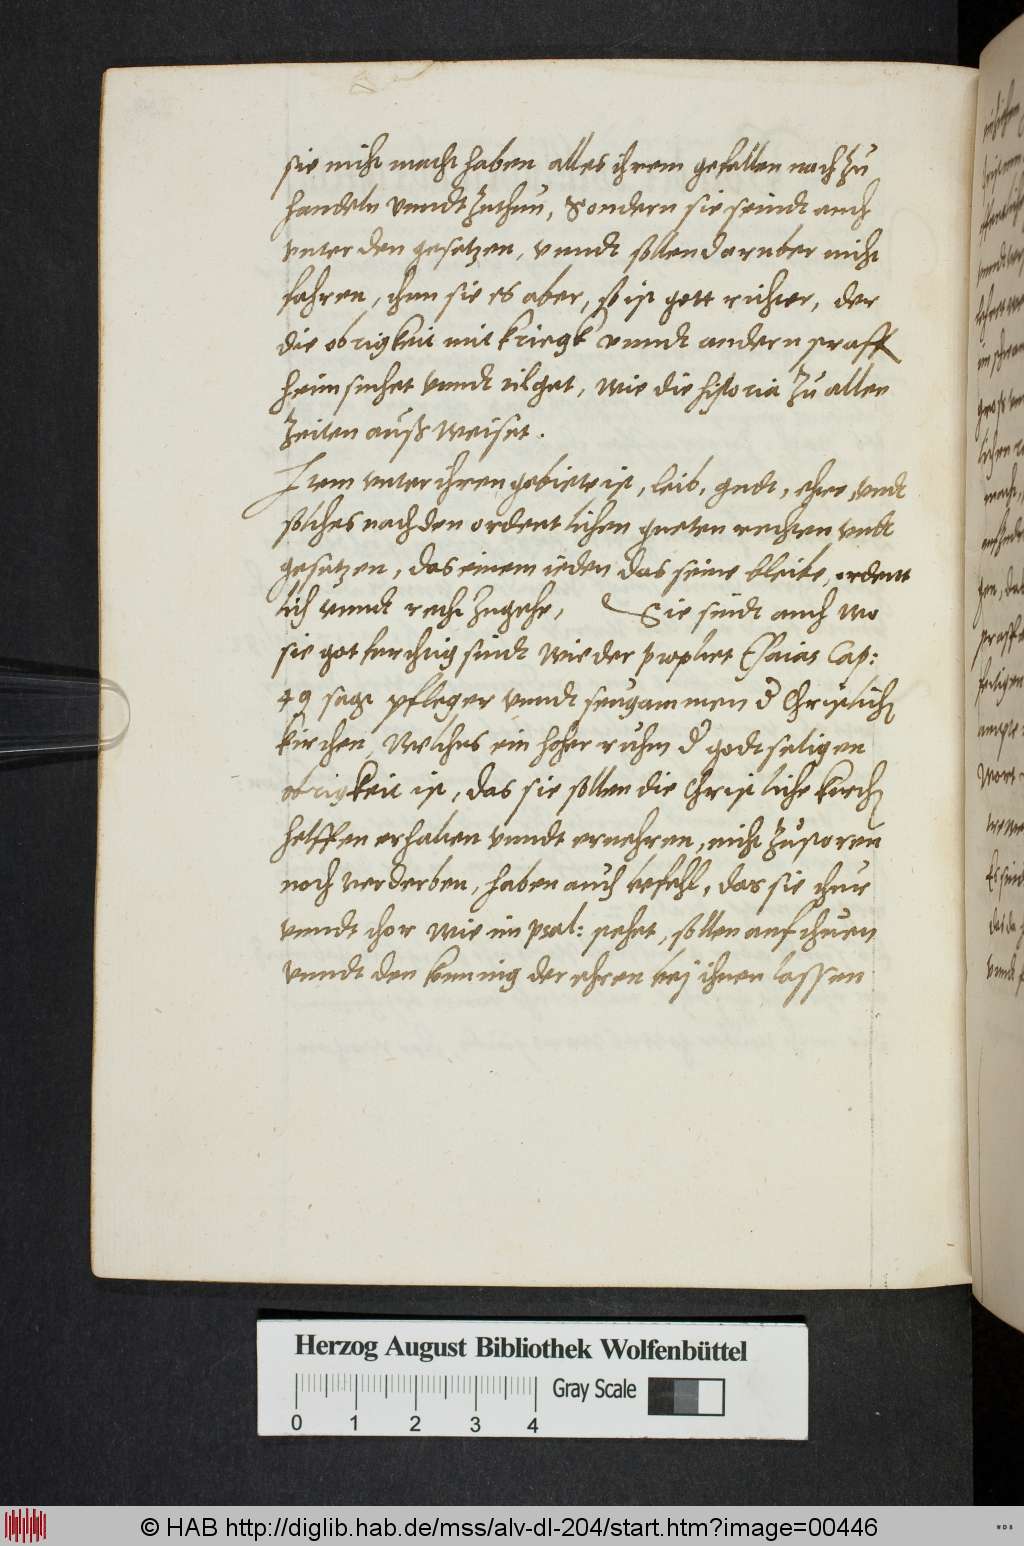 sie nicht macht haben alles ihrem gefallen nach zu
handeln vnndt zuthun, Sondern sie seindt auch
vnter den gesetzen, vnndt sollen daruber nicht
fahren, thun sie es aber, so ist gott richter, der
die obrigkeit mit kriegk vnndt andern straff
heimsuchet vnndt tilget, wie die historia zu allen
Zeiten außweiset.
Item vnter ihren gebiete ist, leib, gudt, ehre, vndt
solches nach den ordentlichen gueten rechten vndt
gesetzen, das einem ieden das seine bleibe, ordent
lich vnndt recht zugehe, Sie sindt auch wo
sie gotfurchtig sindt wie der prophet Esaias Cap:
49 sagt pfleger vnndt seugammen d Christlich
kirchen, Welches ein hoher ruhm d godtseligen
obrigkeit ist, das sie sollen die Christliche kirch
helffen erhalten vnndt ernehren, nicht zustoren
noch verderben, haben auch befehl, das sie thure
vnndt thor wie im psal: stehet, sollen aufthuen
vnndt den konnig der ehren beij ihnen lassen
Herzog August Bibliothek Wolfenbüttel
0 1 2 3 4
Gray Scale
© HAB http://diglib.hab.de/mss/alv-dl-204/start.htm?image=00446